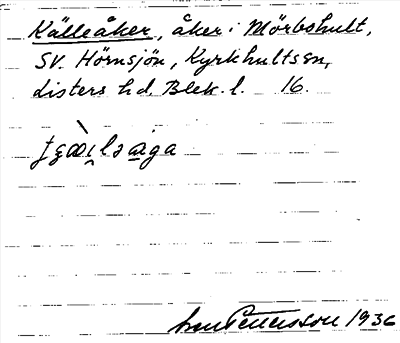 Källeåker, åker i Mörbohult,
SV. Hörnsjön, Kyrkhults sn,
Listers hd, Blek. l. 16.
Pettersson 1936